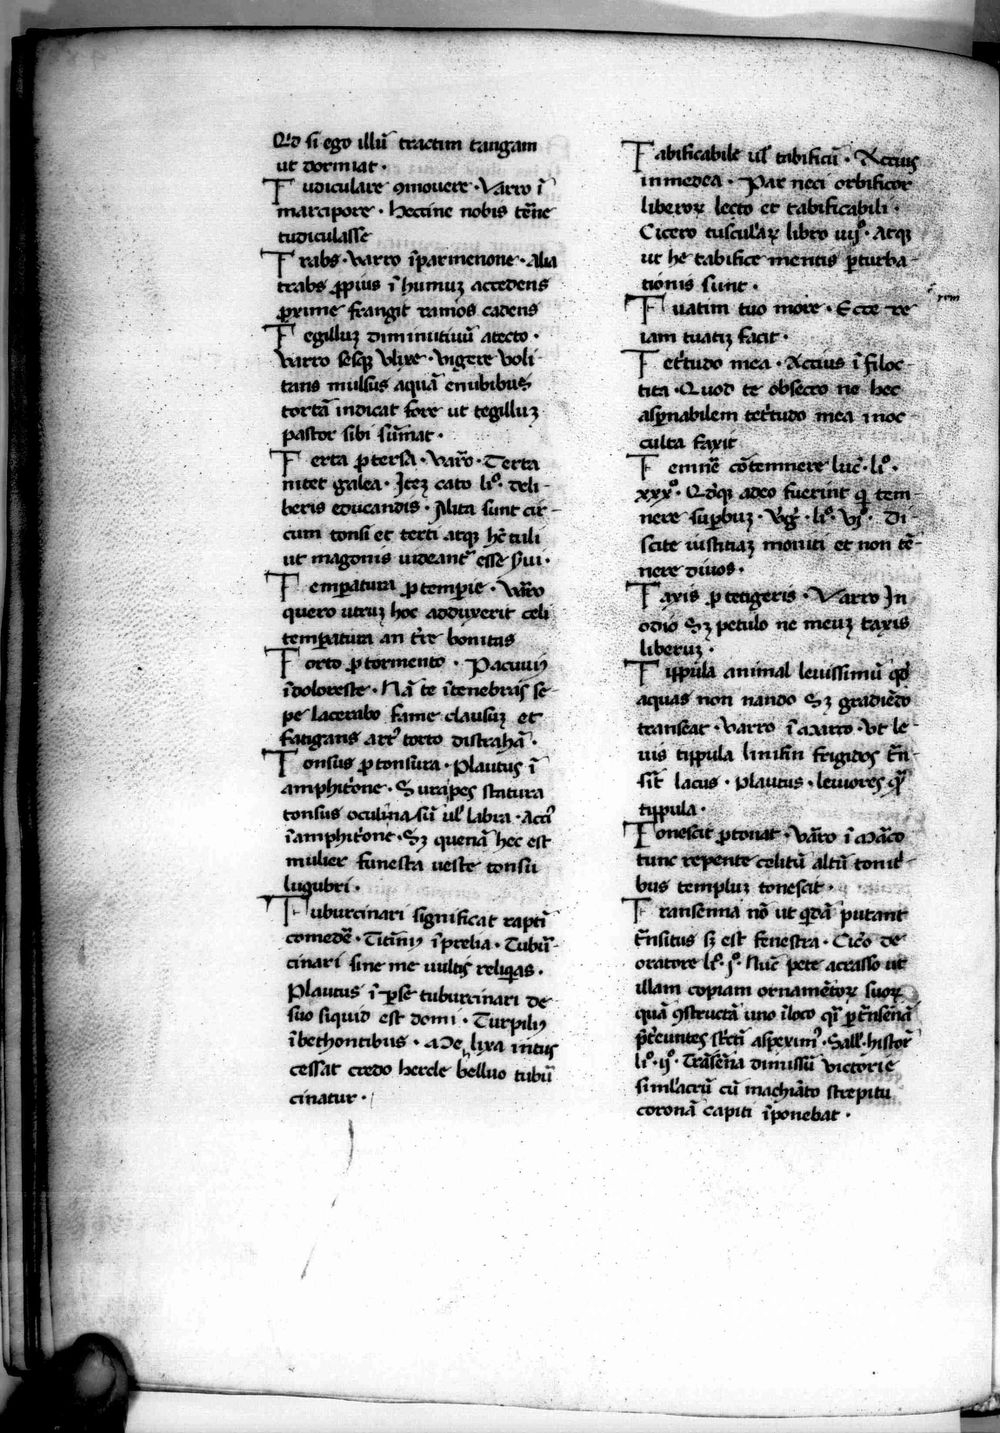 Qd si ego illū tractim tangam
ut dormiat ·
Tudiculare ꝯmouere · Varro ī
marcipore · Heccine nobis tēne
tudiculasse
Trabs · varro īparmenone · Alia
trabs ꝓpius ī humuꝫ accedens
ꝓxime frangit ramos cadens
Tegilluꝫ diminutiuū atecto ·
varro sesqꝫ vlixe · vigere voli-
tans mulsus aquā enubibus
tortā indicat fore ut tegilluꝫ
pastor sibi sūmat ·
Terta ꝓ tersa · varō · Terta
nitet galea · Iteꝫ cato liº · deli-
beris educandis · Alita sunt cir-
cum tonsi et terti atqꝫ hē tuli
ut magonis uideant᷑ esse sui ·
Temꝑatura ꝓ tempie · varō
quero utruꝫ hoc adduxerit celi
temꝑatura an t̄re bonitas
Torto ꝓ tormento · Pacuuiꝰ
īdoloreste · Nā te ītenebris se-
pe lacerabo fame clausuꝫ et
fatigans artꝰ torto distrahā ·
Tonsus ꝓ tonsura · Plautus ī
amphit᷑one · Surapes statura
tonsus oculi nasū ul᷑ labra · Acci
īamphit᷑one · Sꝫ quenā hec est
mulier funesta ueste tonsu
lugubri ·
Tuburcinari significat raptī
comedē · Titīniꝰ īprelia · Tubur̄-
cinari sine me uultis reliqas ·
Plautus ī ꝑse tuburcinari de
suo siquid est domi · Turpiliꝰ
ībethontibus · me lixa intus
cessat credo hercle helluo tubur̄
cinatur ·
Tabificabile ul᷑ tabificū · Accius
inmedea · Par neci orbificor
liberoꝝ lecto et tabificabili ·
Cicero tusculaꝝ libro iiijº · atqꝫ
ut he tabifice mentis ꝑturba-
tionis sunt ·
Tuatim tuo more · Ecce re
rem
iam tuatiꝫ facit ·
Tet᷑tudo mea · Accius ī filoc-
tita · Quod te obsecro ne hec
aspnabilem tet᷑tudo mea inoc-
culta faxit
Temnē cōtemnere luc᷑ · liº ·
xxxº · Qdqꝫ adeo fuerint qi tem-
nere suꝑbuꝫ · Virg᷑ · liº · vjº · Di-
scite iustitiaꝫ moniti et non tē-
nere diuos ·
Taxis ꝓ tetigeris · Varro In
odio Sꝫ petulo ne meuꝫ taxis
liberuꝫ ·
Tippula animal leuissimū qd
aquas non nando Sꝫ gradiēdo
transeat · varro ī marco · Ut le
uis tippula frigidos
lacus · Plautus · leuiores
tippula ·
Tonescit ꝓtonat · varō ī
tunc repente celitū altū tonit᷑-
bus templuꝫ tonescit ·
Transenna nō ut qdā putant
t̄nsitus sꝫ est fenestra · Cicō de
oratore liº · jº · Nūc pete acrasso ut
illam copiam ornamētoꝝ suoꝝ
quā ꝯstructā uno īloco qi ꝑ t̄nsēnā
p̄t᷑euntes strictī aspeximꝰ · Sall᷑ · histor᷑
liº · ijº · Trāsēna dimissū victorie
simlacrū cū machīato strepitu
coronā capiti īponebat ·